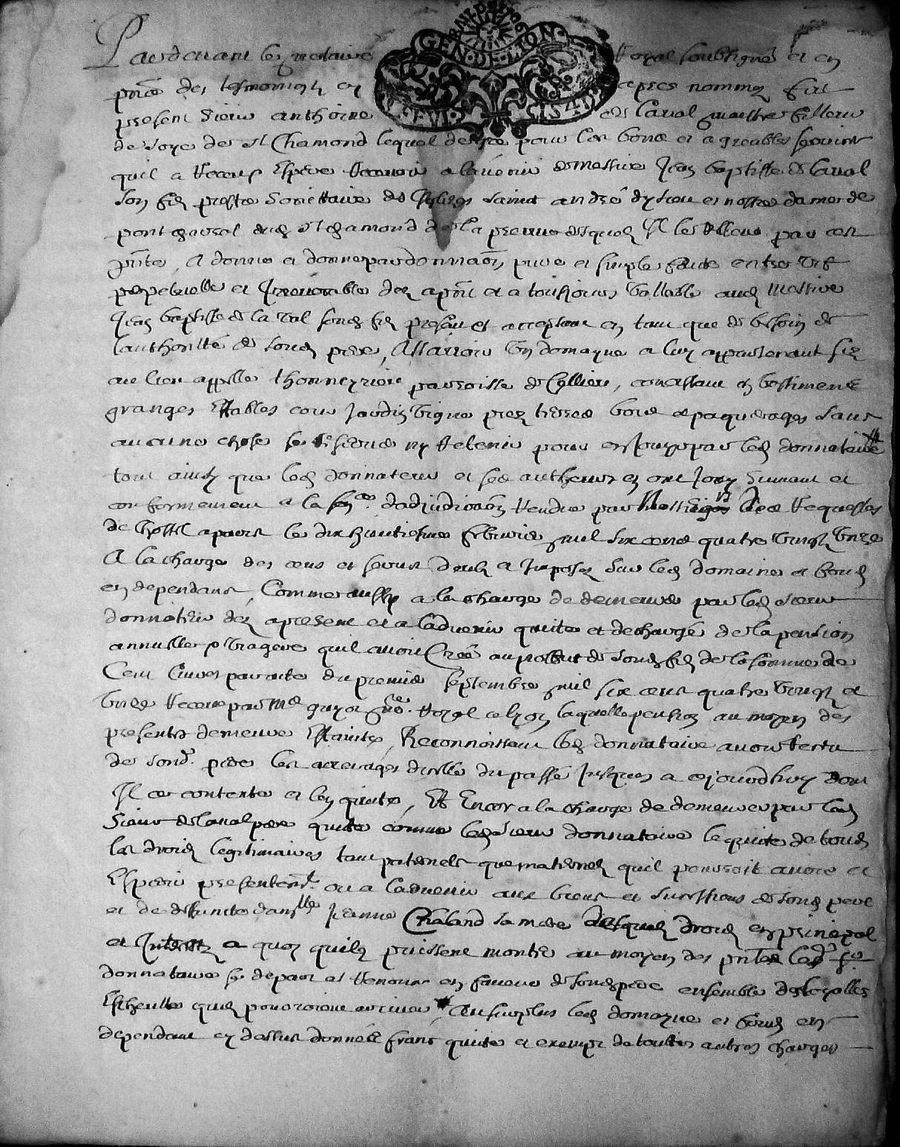 GEN·DE·LYON
Pardevant le notaire Royal soubsigné et en
pnce des tesmoings en apres nommez fut
present sieur anthoine de Laval maistre
de soye de St Chamond lequel desire pour les bons et agreables services
quil a receus espere recevoir a ladvenir de messire Jean baptiste de Laval
son filz prestre societaire des Esglises saint andré et nostre dame de
pont dud St chamond de la preuve desquelz Il les Relleve par ces
pntes, A donné et donne par donnaōn pure et simple faite entre vifs
perpetuelle et Irrevocable dez apnt et a tousjours vallable aud Messire
Jean baptiste de la Val sond filz present et acceptant en tant que de besoin de
lauthorité de sond pere, Assavoir un domayne a luy appartenant sis
au lieu appellé parroisse de Cellieu, consistant en bastiments
granges estables cour Jardin vigne prez terres bois et paquerages sans
aucune chose se reserver ny retenir pour en jouyr par led donnataire
tout ainsy que led donnateur et ses autheurs en ont jouy suivant et
conformement a la snce dadjudicaōn rendue par Messieurs des Requestes
de lhostel a paris le dix huitiesme febvrier mil six cens quatre vingt unze
A la charge des cens et servis deubz a Imposez sur led domaine et fondz
en dependant, Comme aussy a la charge de demeurer par led sieur
donnateur dez apresent et a ladvenir quitte et dechargé de la pension
annuelle et viagere quil avoit Creé au proffict de sond filz de la somme de
Cent livres par acte du premier septembre mil six cens quatre vingt et
unze receu par Me guyot nre Royal a lyon laquelle pension au moyen des
presentes demeure Estainte, Reconnoissant led donnataire avoir receu
de sond. pere les arrerages dicelle du passé Jusques a cejourdhuy dont
Il se contente et len quitte, Et Encor a la charge de demeurer par led
Sieur de Laval pere quitte comme led sieur donnataire le quitte de tous
les droits legitimaires tant paternels que maternels quil pouvoit avoir et
Esperer presentemt. ou a ladvenir aux biens et successions de sond pere
et de deffuncte damlle Jeanne Chaland sa mere desquels droits en principal
et Interetz a quoy quils puissent monter au moyen des pntes led sr
donnataire se depart et renonce en faveur de sond pere ensemble de
Escheuttes quy pourroient arriver, Au surplus led domayne et fondz en
dependant cy dessus donnés franc quitte et exempt de touttes autres charges